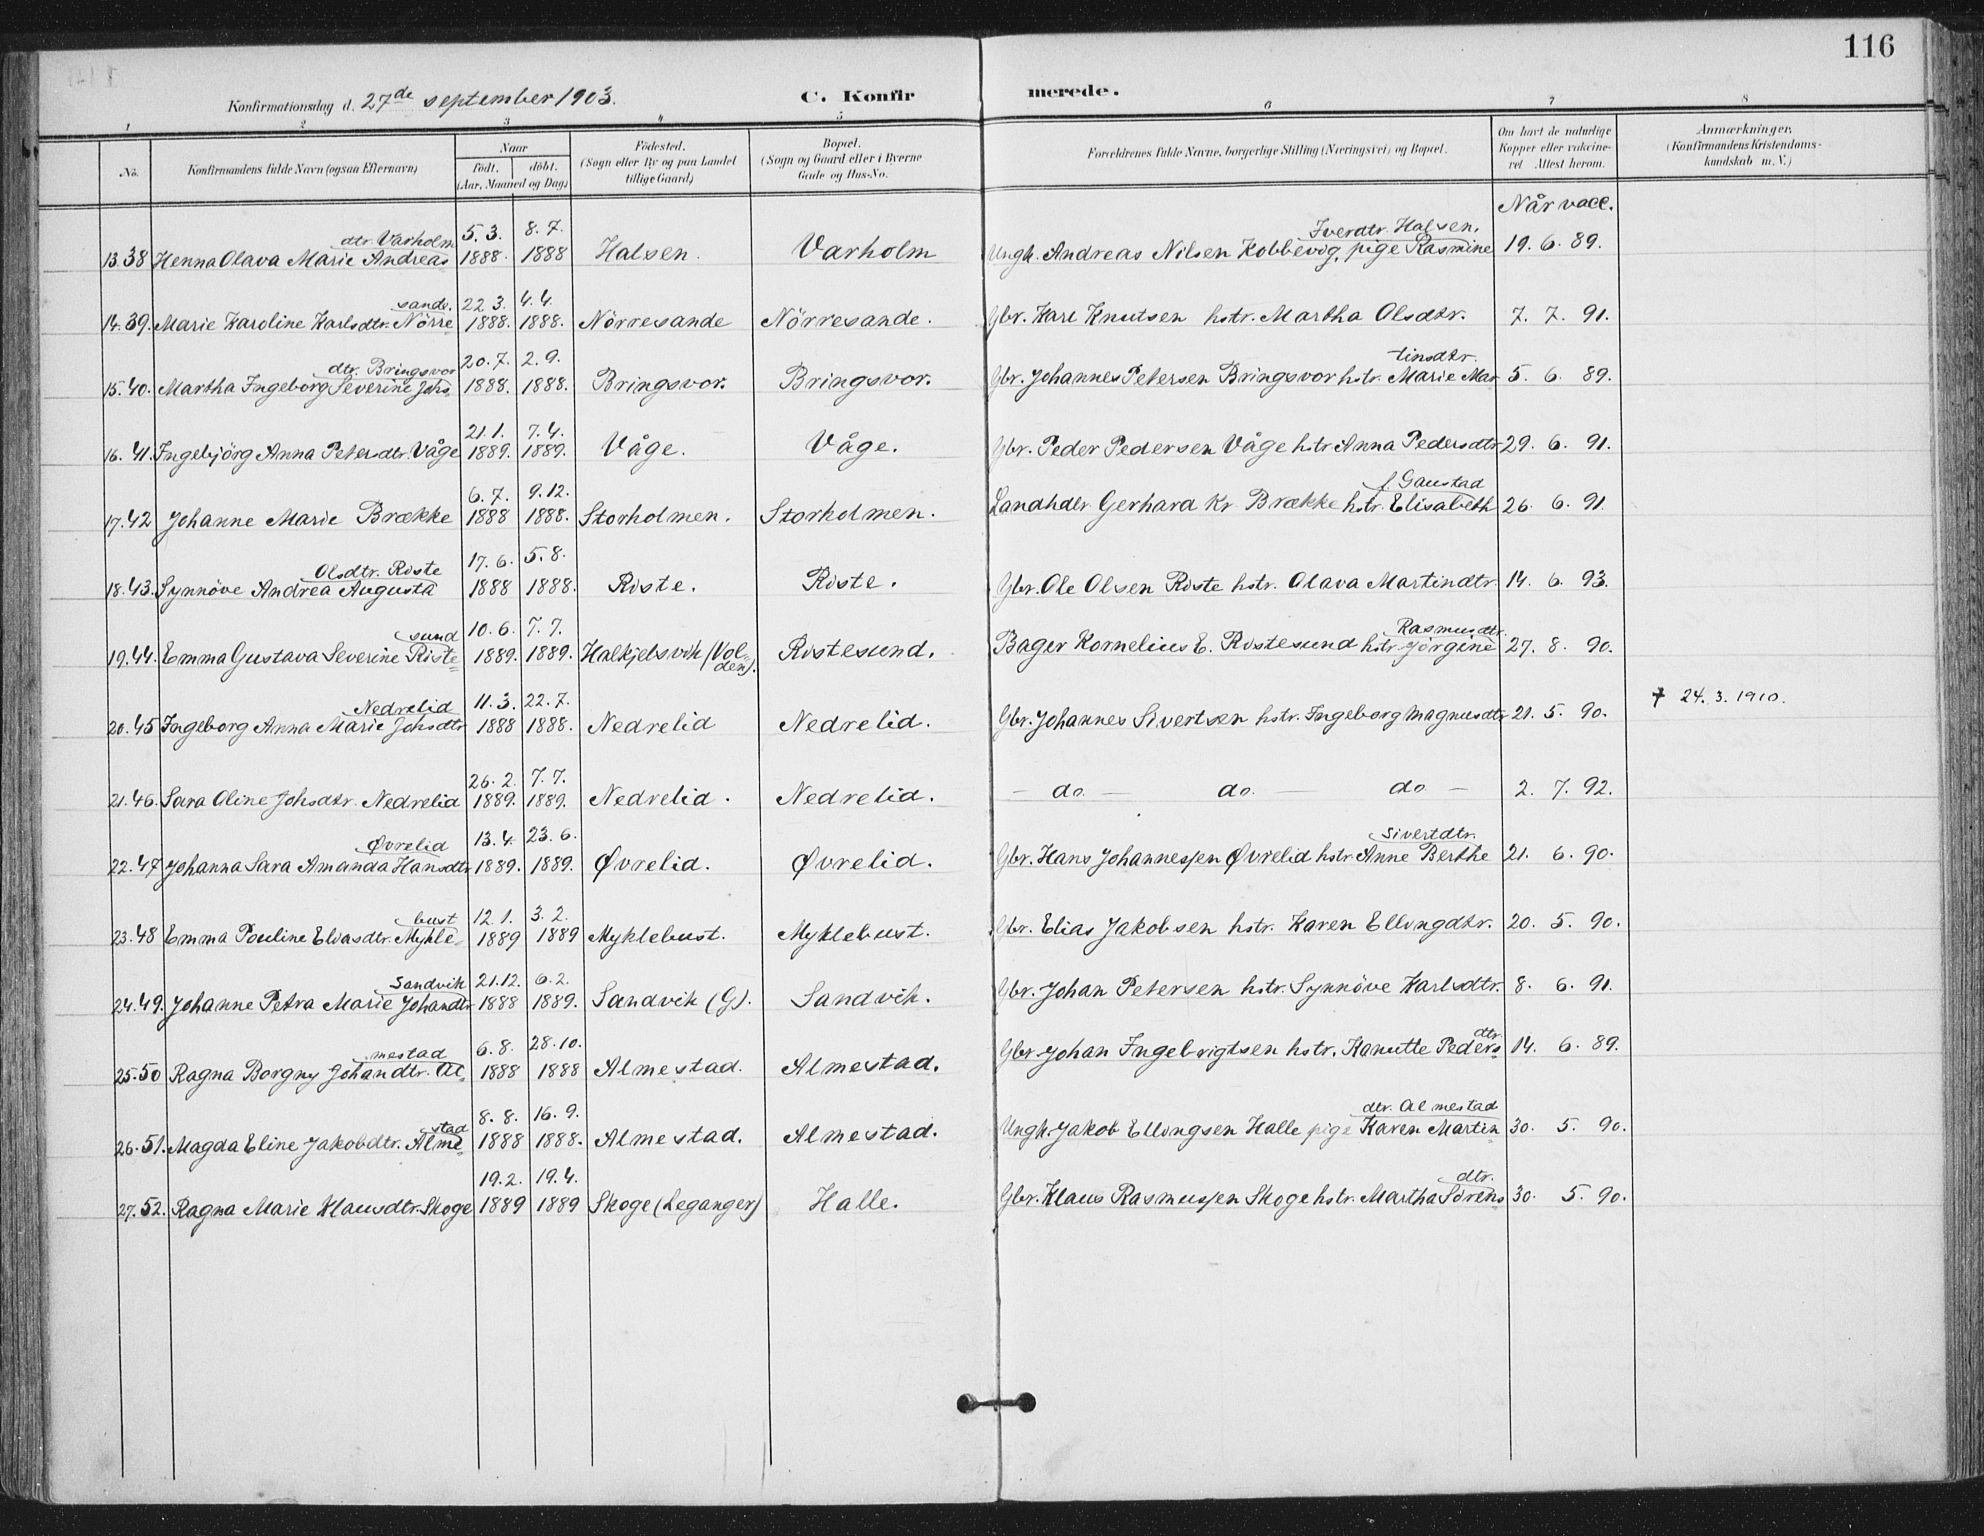 116
Konfirmationsdag d. 27de september 1903. C. Konfir merede.
1 2 3 4 5 6 7 8
No. Konfirmandens fulde Navn (ogsaa Efternavn) Naar födt. döbt. (Aar, Maaned og Dag) Födested. (Sogn eller By og paa Landet tillige Gaard) Bopæl. (Sogn og Gaard eller i Byerne Gade og Hus-No. Forældrenes fulde Navne, borgerlige Stilling (Næringsvei) og Bopæl. Om havt de naturlige Kopper eller vakcineret. Attest herom. Anmærkninger. (Konfirmandens Kristendomskundskab m. V.)
Når vacc.
dtr. Varholm 5.3. 8.7. Iverdtr. Halsen.
13. 38 Henna Olava Marie Andreas 1888. 1888 Halsen. Varholm Ungk. Andreas Nilsen Kobbevig, pige Rasmine 19. 6. 89.
sande. 22 3. 4.4.
14. 39. Marie Karoline Karlsdtr. Nörre 1888. 1888. Nörresande Nörresande. Gbr. Karl Knutsen hstr. Martha Olsdtr. 7. 7. 91.
dtr. Bringsvor 20.7. 2.9. tinsdtr.
15. 40. Martha Ingeborg Severine Johs 1888. 1888. Bringsvor. Bringsvor. Gbr. Johannes Petersen Bringsvor hstr. Marie Mar 5. 6. 89.
21.1. 7.4.
16. 41. Ingebjörg Anna Petersdtr. Våge 1889. 1889. Våge. Våge. Gbr. Peder Pedersen Våge hstr. Anna Pedersdtr 29. 6. 91.
6.7. 9.12. f. Gaustad
17. 42 Johanne Marie Brække 1888 1888. Storholmen. Storholmen. Landhdlr Gerhard Kr Brække hstr. Elisabeth 26. 6. 91.
Olsdtr. Riste 17.6. 5.8.
18. 43. Synnöve Andrea Augusta 1888 1888. Riste. Riste. Gbr. Ole Olsen Riste hstr. Olava Martindtr. 14. 6. 93.
sund 10.6. 7.7. Rasmusdtr.
19. 44. Emma Gustava Severine Riste 1889. 1889. Halkjelsvik (Volden). Ristesund. Bager Kornelius E. Ristesund hstr. Jörgine 27. 8. 90.
Nedrelid 11.3. 22.7.
20. 45 Ingeborg Anna Marie Johsdtr 1888 1888. Nedrelid Nedrelid. Gbr. Johannes Sivertsen hstr. Ingeborg Magnusdtr 21. 5. 90. † 24. 3. 1910.
26.2. 7.7.
21. 46. Sara Oline Johsdtr. Nedrelid 1889. 1889. Nedrelid. Nedrelid. — do. — do. — do — 2. 7. 92.
Øvrelid 13.4. 23.6. Sivertdtr.
22. 47 Johanna Sara Amanda Hansdtr 1889. 1889. Øvrelid. Øvrelid. Gbr. Hans Johannesen Øvrelid hstr. Anne Berthe 21. 6. 90.
bust 12.1. 3.2.
23. 48 Emma Pouline Eliasdtr. Mykle 1889 1889 Myklebust. Myklebust. Gbr. Elias Jakobsen hstr. Karen Ellingdtr. 20. 5. 90.
Sandvik 21.12. 6.2.
24. 49. Johanne Petra Marie Johandtr 1888 1889. Sandvik (G). Sandvik. Gbr. Johan Petersen hstr. Synnöve Karlsdtr. 8. 6. 91.
mestad 6.8. 28.10. dtr.
25. 50 Ragna Borgny Johandtr. Al 1888 1888 Almestad. Almestad. Gbr. Johan Ingebrigtsen hstr. Hanutte Peders 14. 6. 89.
stad 8.8. 16.9. dtr. Almestad
26. 51. Magda Eline Jakobdtr. Alme 1888 1888. Almestad. Almestad. Ungk. Jakob Ellingsen Halle pige Karen Martin 30. 5. 90.
19.2. 19.4. dtr.
27. 52. Ragna Marie Klausdtr. Skoge 1889 1889 Skoge (Leganger) Halle. Gbr. Klaus Rasmussen Skoge hstr. Martha Sörens 30. 5. 90.